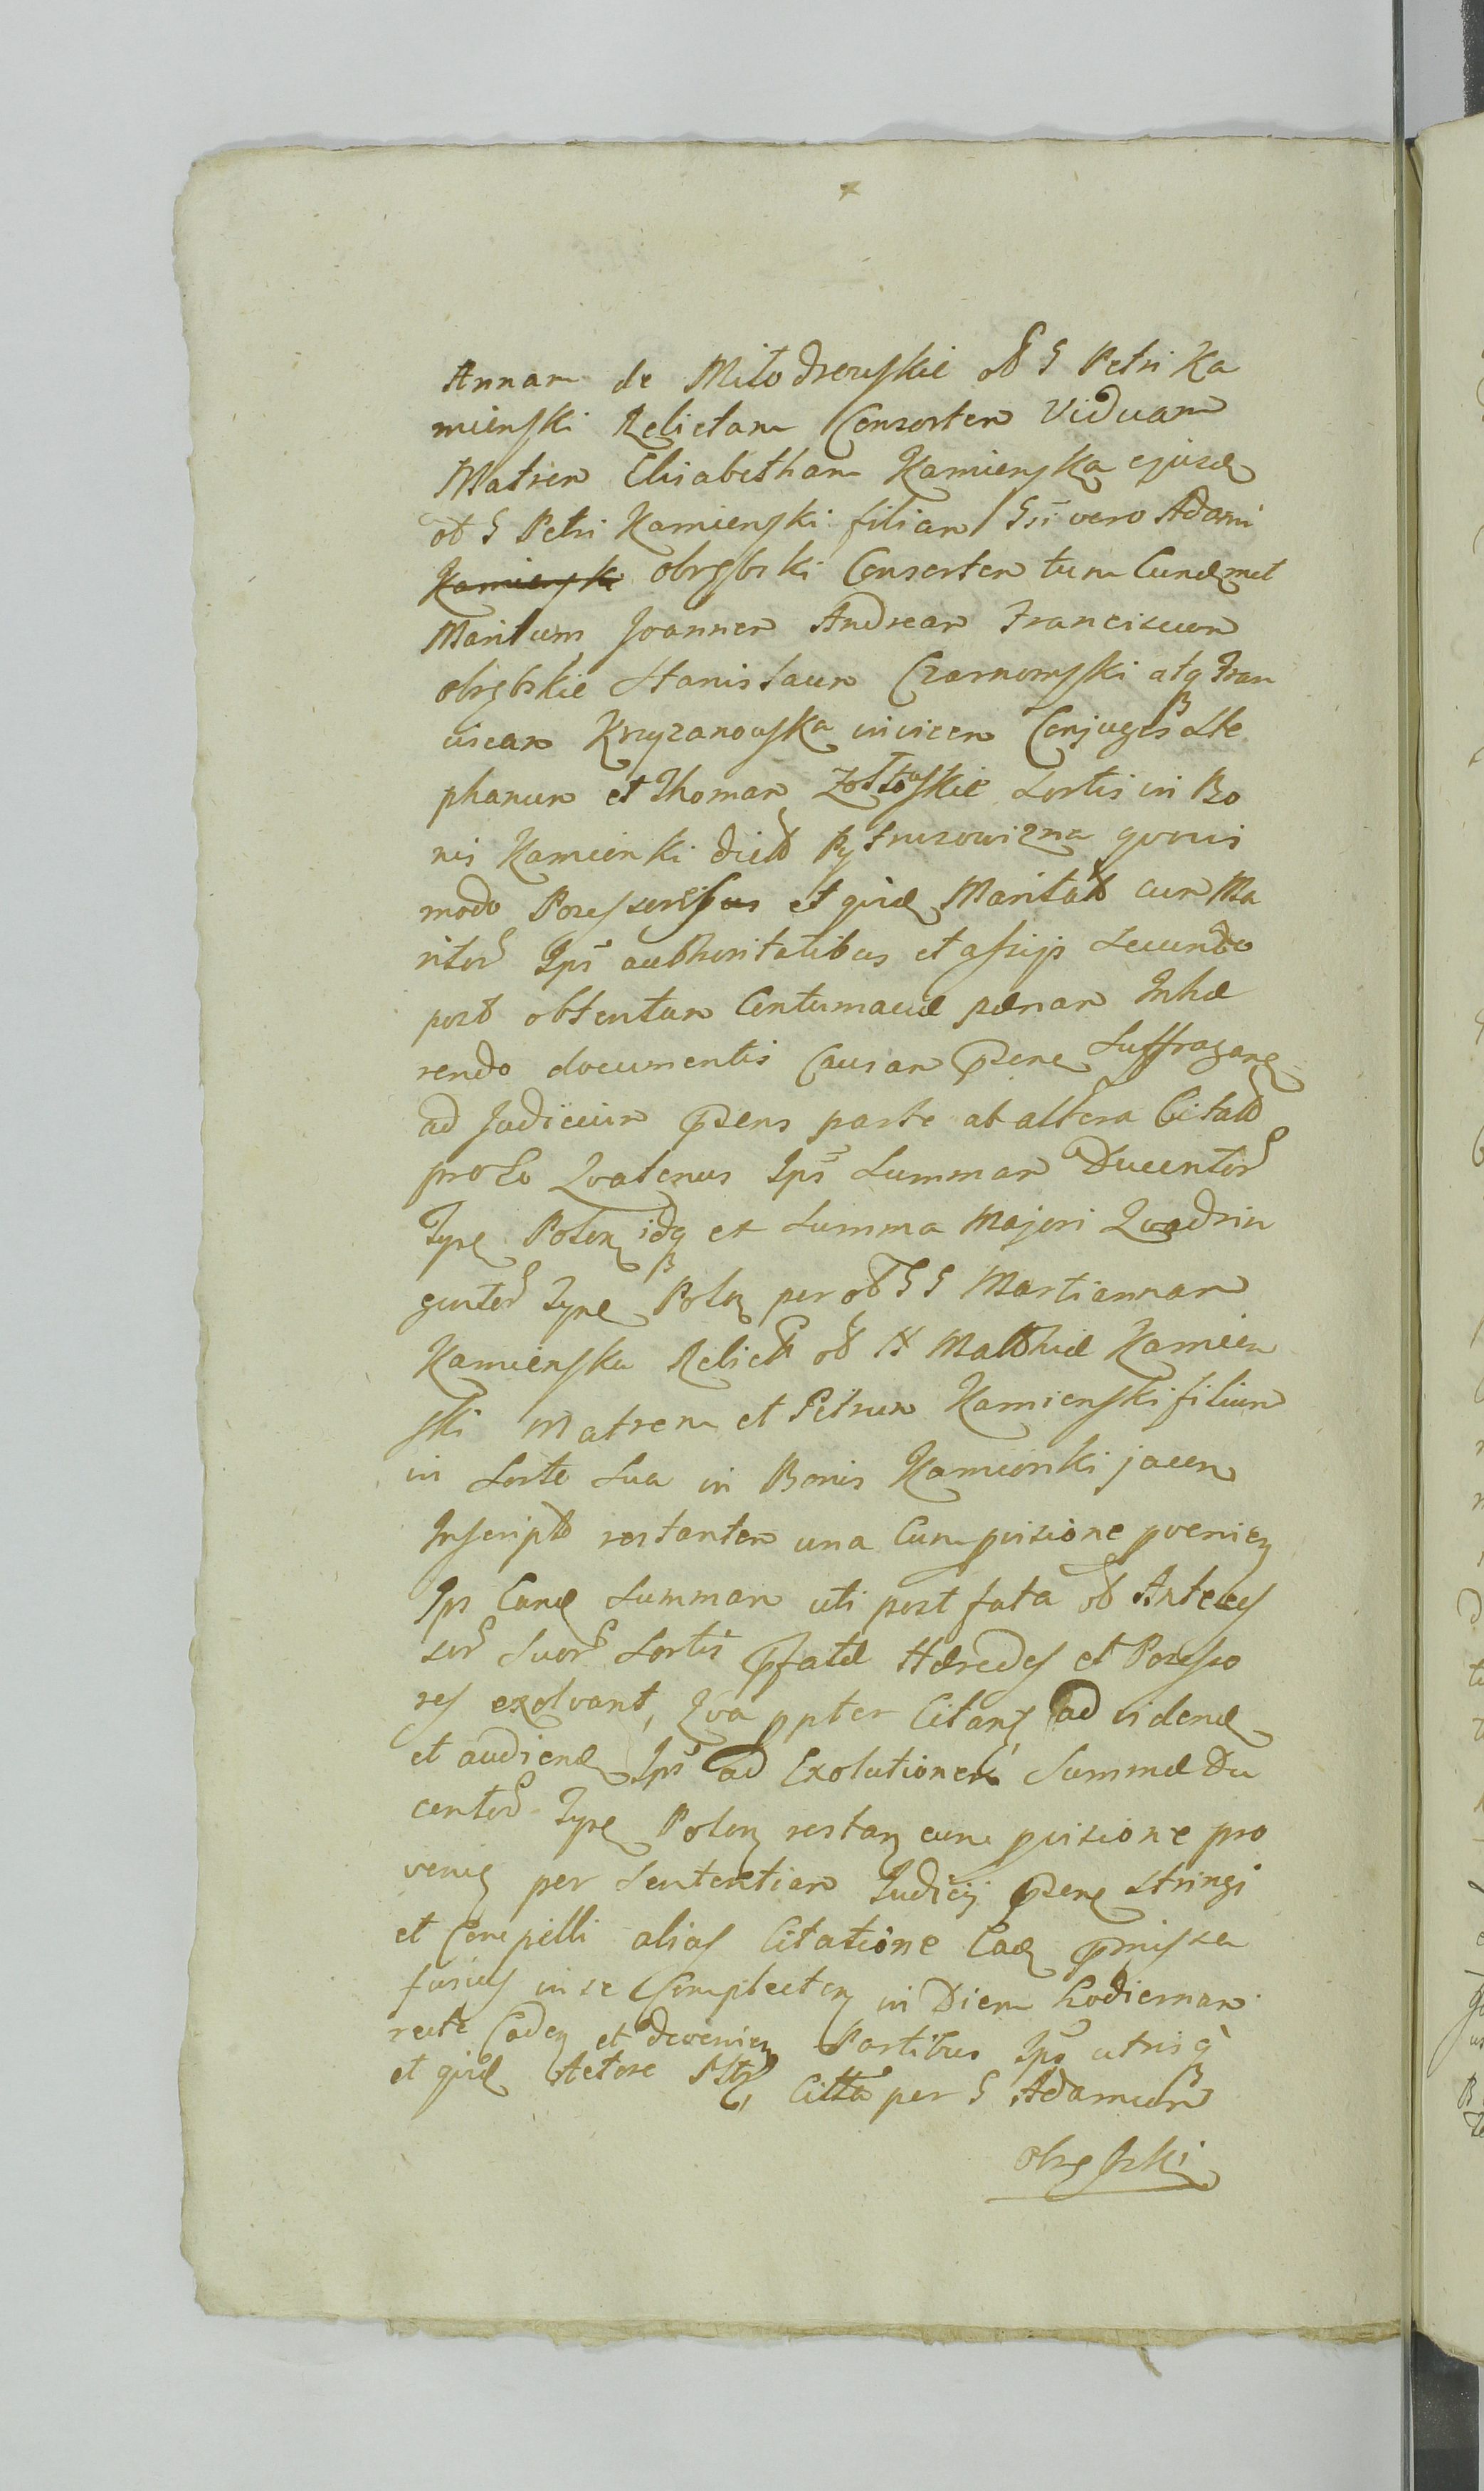 Annam de Miłodrowskie ob G Petri Ka
mienski Relictam Consortem Viduam
Matrem Elisabetham Kamienska ejusd
ob G Petri Kamienski filiam Gsi vero Adami
Kamienski obrębski Consortem tum Eundmet
Maritum Joannem Andream Franciscum
obrębskie Stanislaum Czarnomski atq Fran
ciscam Krzyzanowska invicem Conjuges Ste
phanum et Thomam Zołtoskie Sortis in Bo
nis Kamienki dict quovis
modo Possessores et quid Maritat cum Ma
ritor Ips authoritatibus et assijs Secundo
post obtentam Contumaciæ pænam Inhæ
rendo documentis Causam psen Suffragan
ad Judicium psens parte ab altera Citat
pro Eo Quatenus Ips Summam Ducentor
Tyn Polon idq ex Summa Majori Quadrin
gentor Tyn Polon per ob G G Martiannam
Kamienska Relict ob N Matthiæ Kamien
ski Matrem et Petrum Kamienski filium
in Sorte Sua in Bonis Kamionki jacen
Inscript restantem una Cum pvisione pvenien
Ips Eand Summam uti post fata ob Anteces
sor Suor Sortis pfatæ Hæredes et Possesso
res exolvant, Qva ppter Citant ad vidend
et audiend Ips ad Exolutionem Summæ Du
centor Tyn Polon restan cum pvisione pro
venien per Sententiam Judicij psen stringi
et Compelli alias Citatione Ead pmissa
fusius in se Complecten in Diem hodiernam
recte Caden et devenien Partibus Ips utrisq
et quid Actore Citta per G Adamum
obrębski